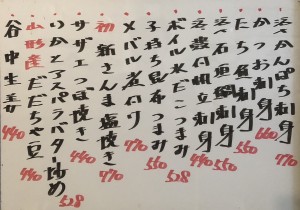 活かんぱち刺身 770
かつお刺身 660
たち魚刺身 550
活石垣鯛刺身 550
活農円帆立刺身 440
ボイル水だこつまみ 528
子持ち昆布つまみ 550
メバル煮付 770
初新さんま塩焼き 770
サザエつぼ焼き 440
いかとアスパラバター炒め 528
山形産だだちゃ豆 440
谷中生姜 440